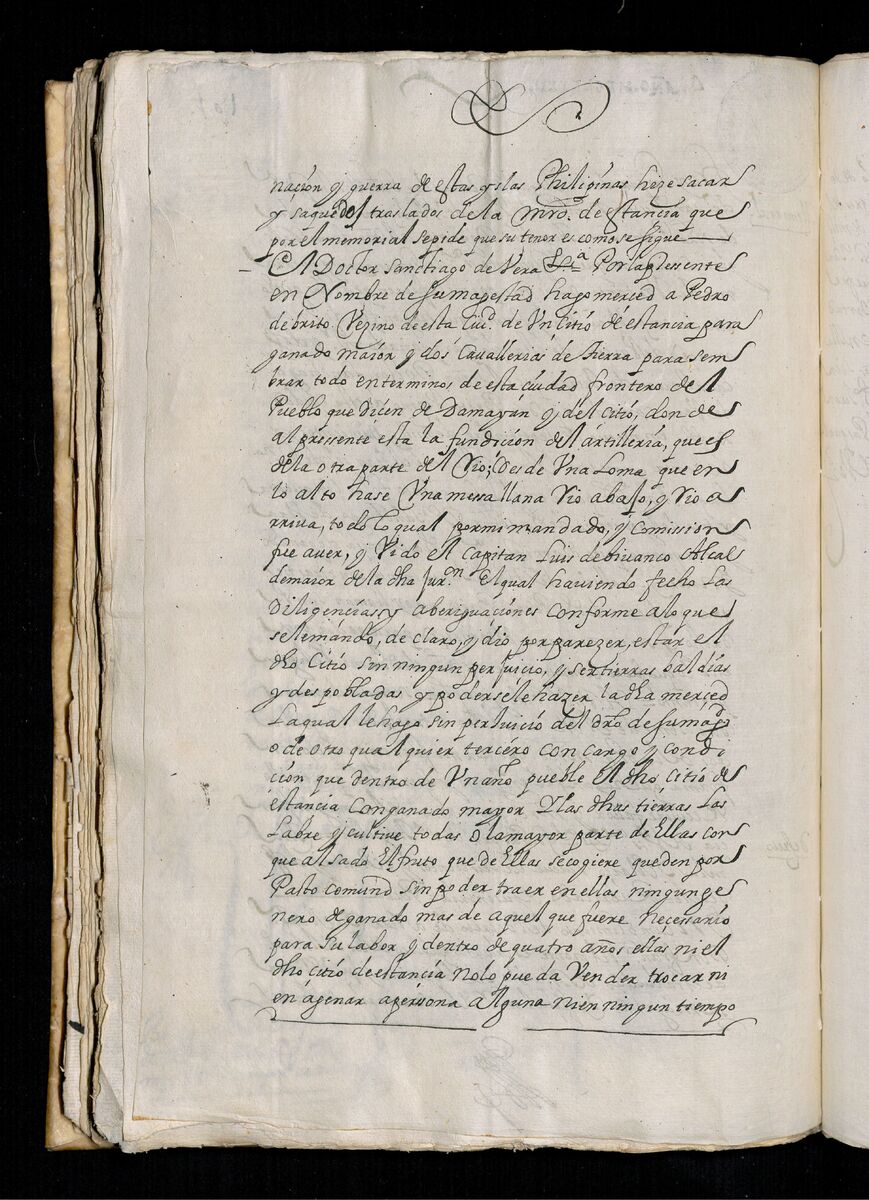 nación y guerra de estas yslas Philipinas hize sacar
y saque dos traslados de la mrd. de estancia que
por el memorial se pide que su tenor es como se sigue
El Doctor Sanctiago de Vera &a Por la pressente
en Nombre de su magestad hago merced a Pedro
de brito Vezino de esta Ciud. de Un Citio de estancia para
ganado maior y dos Cavallerias de tierra para sem
brar todo en terminos de esta ciudad frontero del
Pueblo que dicen de Damayan y del citió, don de
al pressente esta la fundición del ártilleria, que es
de la otra parte del Rio; Desde Una Loma que en
lo alto hase Una messa llana Rio abajo, y Rio a
rriva, todo lo qual por mi mandado, y Comission
fue a ver, y Vido el Capitan Luis de bivanco Alcal
de maior de la dha jur.on El qual haviendo fecho las
Diligencias y aberiguaciónes Conforme a lo que
se le mándo, declaro, y dio por parezer, estár el
dho Citió sin ningun perjuicio, y ser tierras baldias
y despobladas y podersele hazer la dha merced
La qual le hago sin perjuicio del dro. de su magd.
o de otro qual quier tercero con cargo y condi
ción que dentro de Un año pueble El dho Citió de
éstancia Con ganado mayor Y las dhas tierras Las
Labre y cultive todas o la mayor parte de Ellas con
que alsado El fruto que de Ellas se cogiere queden por
Pasto comun sin poder traer en ellas ningun ge
nero de ganado mas de aquel que fuere necessario
para su labor y dentro de quatro años ellas ni el
dho citió de estancia no lo pueda Vender trocar ni
en ágenar a persona alguna ni en ningun tiempo